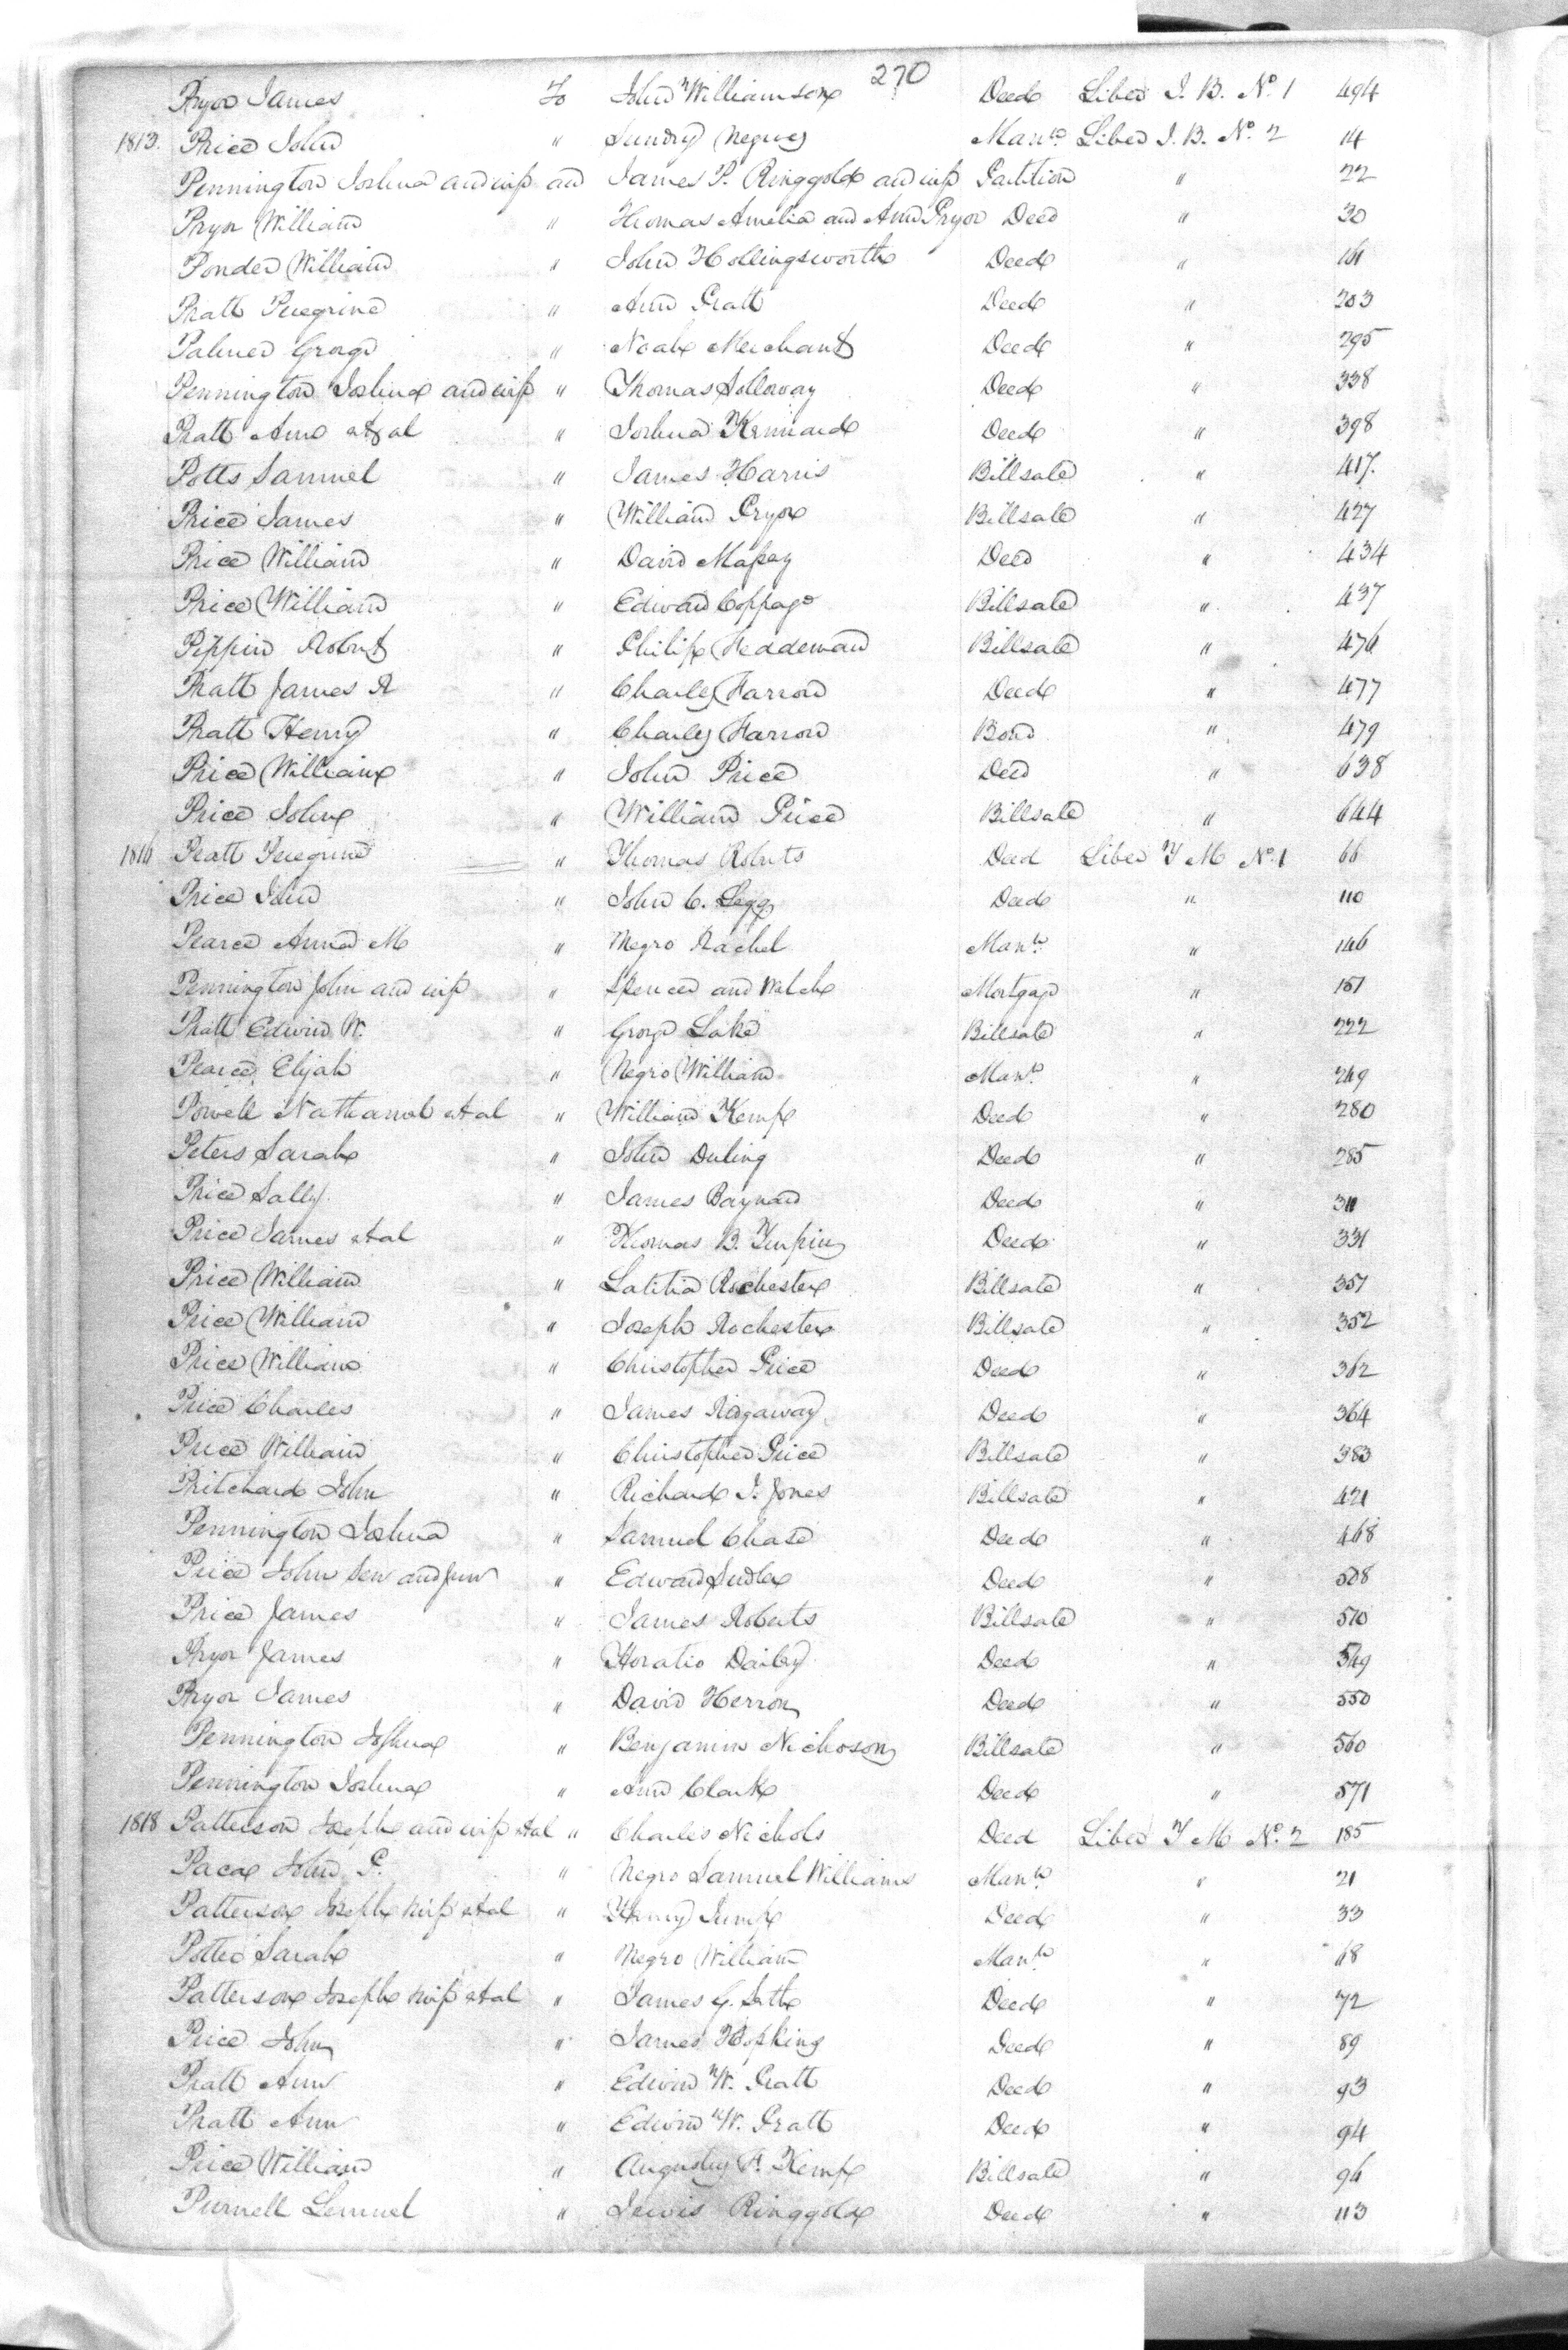 270
Pryor James To John Williamson Deed Liber J. B. No. 1 494
1813. Price John " Sundry Negroes Manⁿ. Liber J. B. No. 2 14
Pennington Joshua and wife and James P. Ringgold and wife Partition " 22
Pryor William " Thomas Amelia and Ann Pryor Deed " 30
Ponder William " John Hollingsworth Deed " 161
Pratt Peregrine " Ann Pratt Deed " 203
Palmer George " Noah Merchant Deed " 295
Pennington Joshua and wife " Thomas Solloway Deed " 338
Pratt Ann et al " Joshua Kennard Deed " 398
Potts Samuel " James Harris Billsale " 417.
Price James " William Pryor Billsale " 427
Price William " David Massey Deed " 434
Price William " Edward Coppage Billsale " 437
Pippin Robert " Philip Feddeman Billsale " 476
Pratt James R " Charles Farrow Deed " 477
Pratt Henry " Charles Farrow Bond " 479
Price William " John Price Deed " 638
Price John " William Price Billsale " 644
1816 Pratt Peregrine " Thomas Roberts Deed Liber T M No. 1 66
Price John " John C. Legg Deed " 110
Pearce Anna M " Negro Rachel Manⁿ. " 146
Pennington John and wife " Spencer and Welch Mortgage " 151
Pratt Edwin W. " George Lake Billsale " 222
Pearce Elijah " Negro William Manⁿ. " 249
Powell Nathaniel et al " William Kemp Deed " 280
Peters Sarah " John Duling Deed " 285
Price Sally " James Baynard Deed " 311
Price James et al " Thomas B. Turpin Deed " 331
Price William " Latitia Rochester Billsale " 351
Price William " Joseph Rochester Billsale " 352
Price William " Christopher Price Deed " 362
Price Charles " James Ridgaway Deed " 364
Price William " Christopher Price Billsale " 383
Pritchard John " Richard I. Jones Billsale " 421
Pennington Joshua " Samuel Chase Deed " 468
Price John Sen and Jun " Edward Sudler Deed " 508
Price James " James Roberts Billsale " 510
Pryor James " Horatio Dailey Deed " 549
Pryor James " David Herron Deed " 550
Pennington Joshua " Benjamin Nichoson Billsale " 560
Pennington Joshua " Ann Clark Deed " 571
1818 Patterson Joseph and wife et al " Charles Nichols Deed Liber T M No. 2 185
Paca John P. " Negro Samuel Williams Manⁿ. " 21
Patterson Joseph wife et al " Henry Jump Deed " 33
Potter Sarah " Negro William Manⁿ. " 68
Patterson Joseph wife et al " James G. Seth Deed " 72
Price John " James Hopkins Deed " 89
Pratt Ann " Edwin W. Pratt Deed " 93
Pratt Ann " Edwin W. Pratt Deed " 94
Price William " Augustus F. Kemp Billsale " 96
Purnell Lemuel " Lewis Ringgold Deed " 113